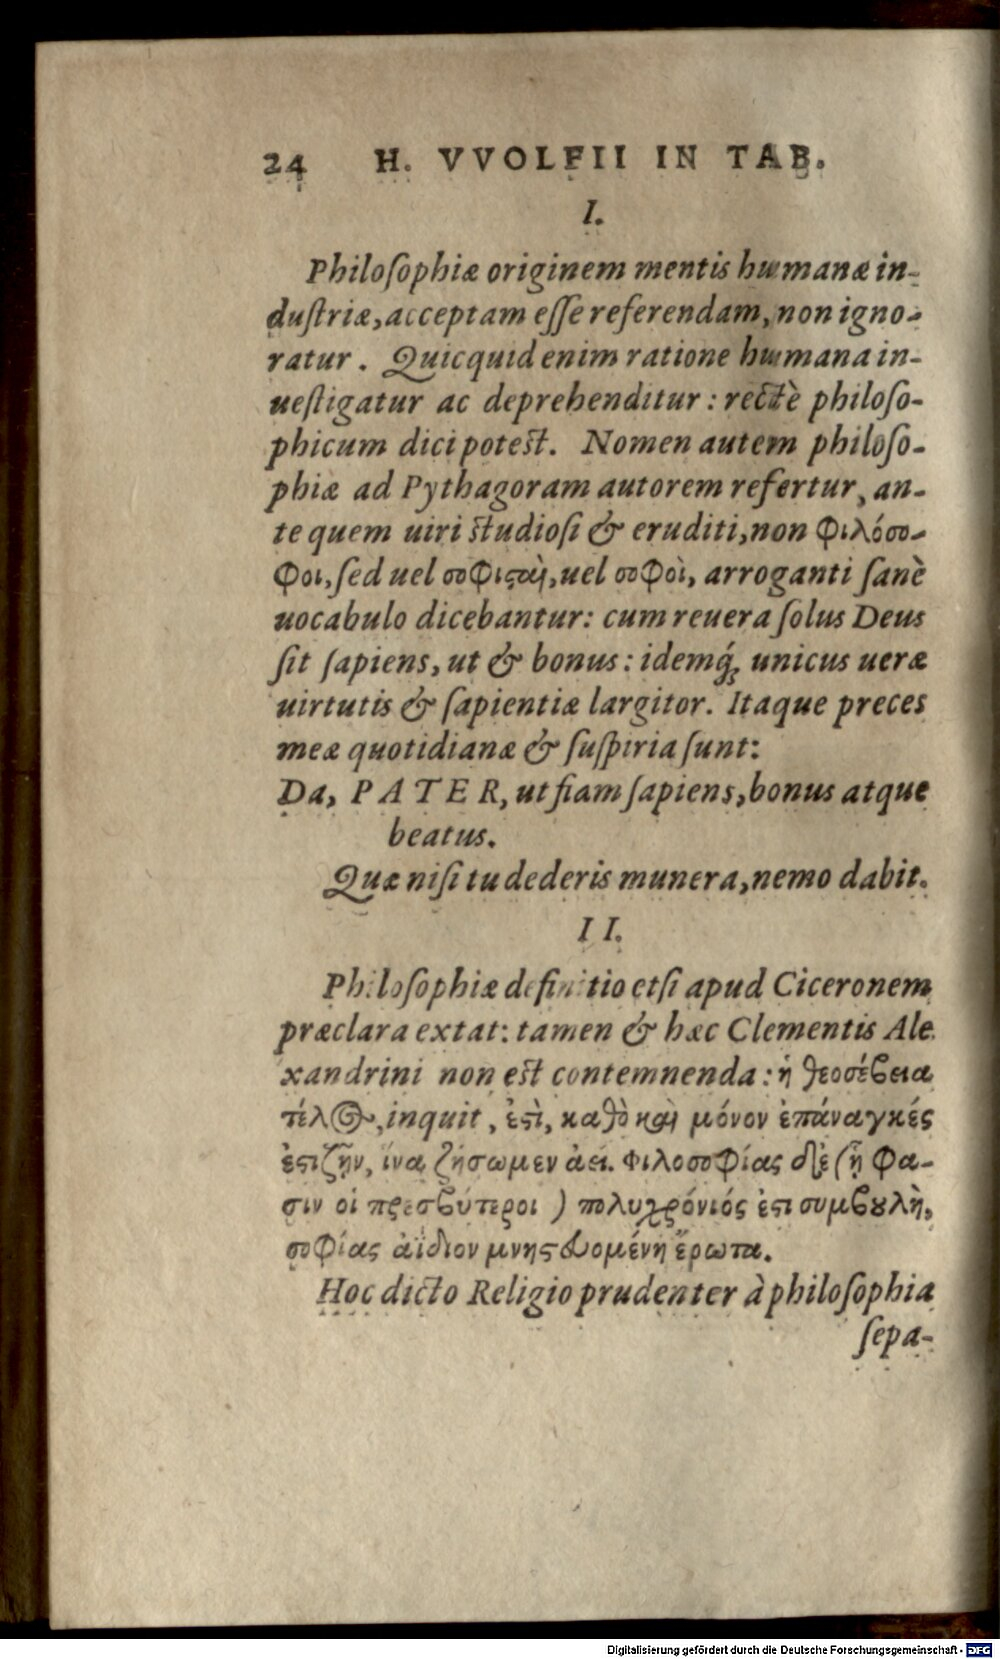 24 H. VVOLFII IN TAB.
I.
Philoſophiæ originem mentis humanæ in-
duſtriæ, acceptam eſſe referendam, non igno-
ratur. Quicquid enim ratione humana in-
ueſtigatur ac deprehenditur: rectè philoſo-
phicum dici poteſt. Nomen autem philoſo-
phiæ ad Pythagoram autorem refertur, an-
te quem uiri ſtudioſi & eruditi, non φιλόσο-
φοι, ſed uel σοφιϛαὶ, uel σοφοὶ, arroganti ſanè
uocabulo dicebantur: cum reuera ſolus Deus
ſit ſapiens, ut & bonus: idemq́; unicus ueræ
uirtutis & ſapientiæ largitor. Itaque preces
meæ quotidianæ & ſuſpiria ſunt:
Da, PATER, ut fiam ſapiens, bonus atque
beatus.
Quæ niſi tu dederis munera, nemo dabit.
II.
Philoſophiæ definitio etſi apud Ciceronem
præclara extat: tamen & hæc Clementis Ale
xandrini non eſt contemnenda: ἡ θεοσέβεια
τέλος, inquit, ἐϛὶ, καθὸ καὶ μόνον ἐπάναγκές
ἐϛι ζῆν, ἵνα ζήσωμεν ἀεί. φιλοσοφίας δὲ (ᾗ φα-
σιν οἱ πρεσβύτεροι) πολυχρόνιός ἐϛι συμβȣλὴ,
σοφίας ἀΐδιον μνηϛευομένη ἔρωτα.
Hoc dicto Religio prudenter à philoſophia
ſepa-
Digitalisierung gefördert durch die Deutsche Forschungsgemeinschaft - DFG